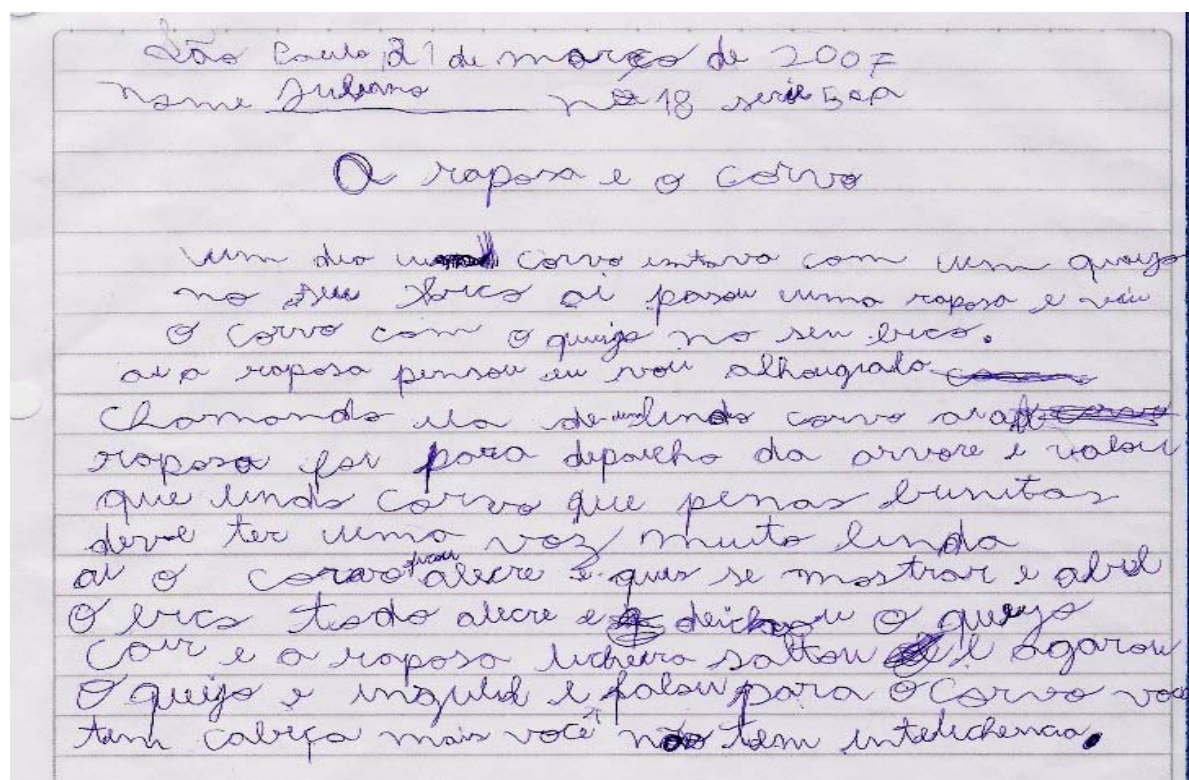 São Paulo, 21 de março de 2007
nome Juliano nº 18 serie 5ªA
A raposa e o corvo
um dia um corvo estava com um queijo
no seu bico ai pasou uma raposa e viu
o corvo com o queijo no seu bico.
ai a raposa pensou eu vou
chamando ela de lindo corvo ai a
raposa foi para depaicho da arvore e valou
que lindo corvo que penas bunitas
deve ter uma voz muito linda
ai o corvo ficou alecre e quis se mostrar e abril
o bico todo alecre e deichou o queijo
cair e a raposa licheira saltou e agarou
o queijo e ingulil e falou para o corvo voce
tem cabeça mais você não tem intelichencia.